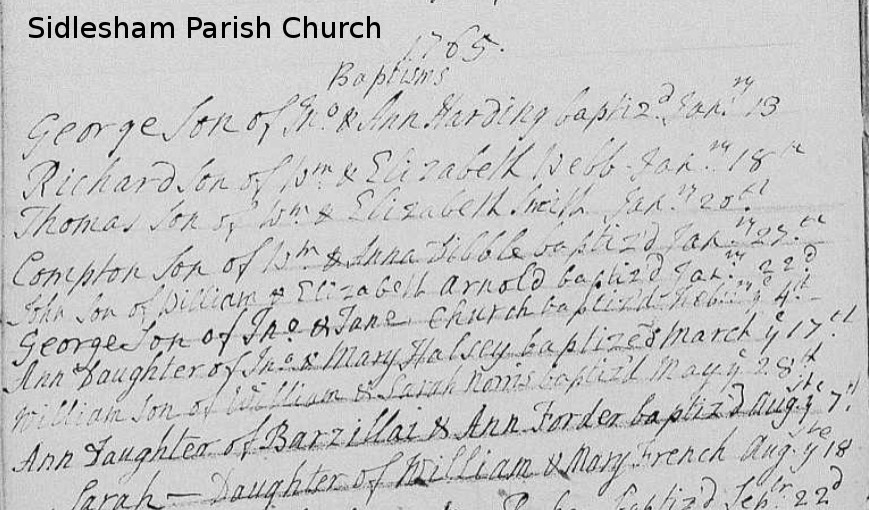 Sidlesham Parish Church
1765.
Baptisms
George Son of Jno. & Ann Harding baptiz'd Janry 13
Richard Son of Wm & Elizabeth Webb Janry 18th
Thomas Son of Wm & Elizabeth Smith Janry 20th
Compton Son of Wm & Anna Tibble baptiz'd Janry 27th
John Son of William & Elizabeth Arnold baptiz'd Janry 22d
George Son of Jno. & Jane Church baptiz'd Febry ye 4th
Ann Daughter of Jno. & Mary Halsey baptized March ye 17th
William Son of William & Sarah Norris baptiz'd May ye 28th
Ann Daughter of Barzillai & Ann Forder baptiz'd Augst ye 7th
Sarah - Daughter of William & Mary French Augst ye 18
baptiz'd Sepbr 22d